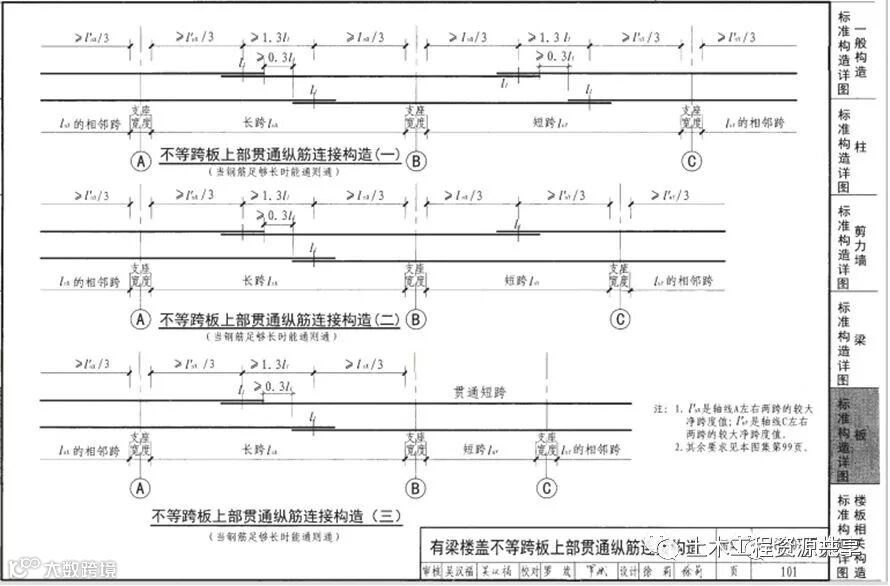 ≥l'nX/3 ≥l'nX/3 ≥1.3ll ≥lnX/3 ≥lnX/3 ≥1.3ll ≥l'nY/3 ≥l'nY/3
≥0.3ll ≥0.3ll
ll ll
ll ll
支座 支座 支座
宽度 宽度 宽度
lnX的相邻跨 长跨lnX 短跨lnY lnY的相邻跨
不等跨板上部贯通纵筋连接构造(一)
(当钢筋足够长时能通则通)
A B C
≥l'nX/3 ≥l'nX/3 ≥1.3ll ≥lnX/3 ≥lnX/3 ≥l'nY/3 ≥l'nY/3
≥0.3ll
ll ll
ll
支座 支座 支座
宽度 宽度 宽度
lnX的相邻跨 长跨lnX 短跨lnY lnY的相邻跨
不等跨板上部贯通纵筋连接构造(二)
(当钢筋足够长时能通则通)
A B C
≥l'nX/3 ≥l'nX/3 ≥1.3ll ≥lnX/3
≥0.3ll
贯通短跨
ll
ll
支座 支座 支座
宽度 宽度 宽度
lnX的相邻跨 长跨lnX 短跨lnY lnY的相邻跨
A B C
不等跨板上部贯通纵筋连接构造(三)
(当钢筋足够长时能通则通)
注: 1. l'nX是轴线A左右两跨的较大
净跨度值; l'nY是轴线C左右
两跨的较大净跨度值.
2. 其余要求见本图集第99页.
有梁楼盖不等跨板上部贯通纵筋连接构造
审核 吴汉福 吴汉福 校对 罗斌 设计 徐莉 徐莉 页 101
标准构造详图
一般构造
标准构造详图
柱
标准构造详图
剪力墙
标准构造详图
梁
标准构造详图
板
标准构造详图
楼板相关构造
土木工程资源共享
大数跨境